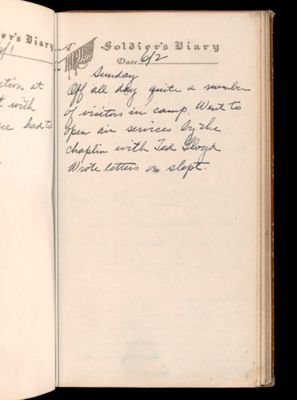 er's Diary
6/1
ction at
t with
ee had to
Soldier's Diary
Date 6/2
Sunday
Off all day quite a number
of visitors in camp. Went to
open air services by the
chaplin with Ted Lloyd
Wrote letters an slept.